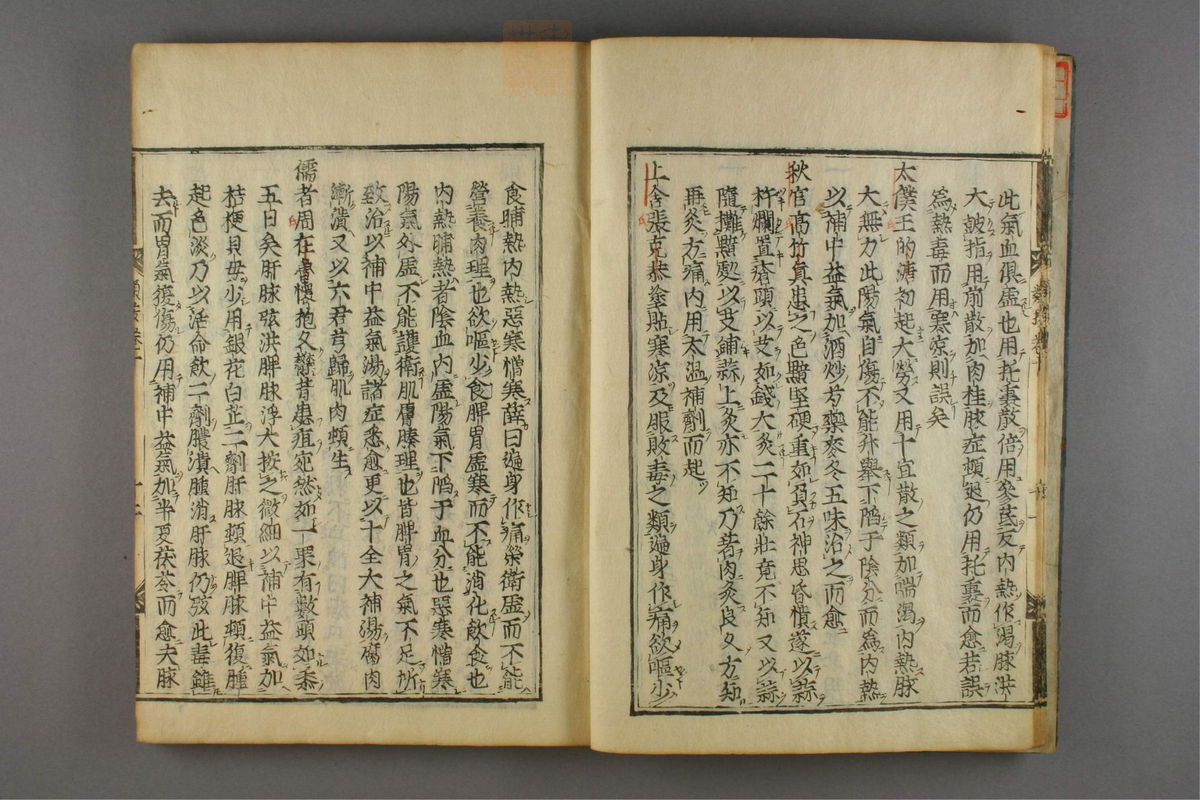 此氣血俱虛也用托裏散倍用參芪反內熱作渴脉洪
大皷指用前散加肉桂脉症頓退仍用托裏而愈若誤
為熱毒而用寒凉則誤矣
太僕王的塘初起大勞又用十宣散之類加喘渴內熱脉
大無力此陽氣自傷不能升舉下陷于陰分而為內熱
以補中益氣加酒炒芍藥麥冬五味治之而愈
秋官高竹真患之色黯堅硬重如負石神思昏憒遂以蒜
杵爛置瘡頭以艾如錢大灸二十餘壯竟不知又以蒜
隨攤黯處以艾鋪蒜上灸亦不知乃着肉灸良久方知
再灸方痛內用太温補劑而起
上舍張克恭塗貼寒凉及服敗毒之類遍身作痛欲嘔少
食晡熱內熱惡寒憎寒薛曰遍身作痛榮衛虛而不能
營養肉理也欲嘔少食脾胃虛寒而不能消化飲食也
內熱晡熱者陰血內虛陽氣下陷于血分也惡寒憎寒
陽氣外虛不能護衛肌膚腠理也皆脾胃之氣不足所
致治以補中益氣湯諸症悉愈更以十全大補湯腐肉
漸潰又以六君芎歸肌肉頓生
儒者周在魯懷抱久鬱昔患疽宛然如一罪有數頭如黍
五日矣肝脉弦洪脾脉浮大按之微細以補中益氣加
桔梗貝母少用銀花白芷二劑肝脉頓退脾脉頓復腫
起色淡乃以活命飲二劑膿潰腫消肝脉仍弦此毒雖
去而胃氣復傷仍用補中益氣加半夏茯苓而愈夫脉